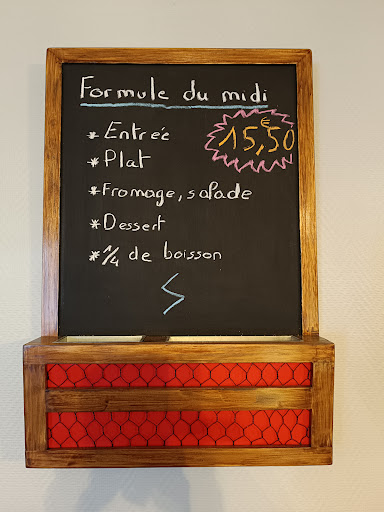 Formule du midi
* Entrée
15,50 €
* Plat
* Fromage, salade
* Dessert
* 1/4 de boisson